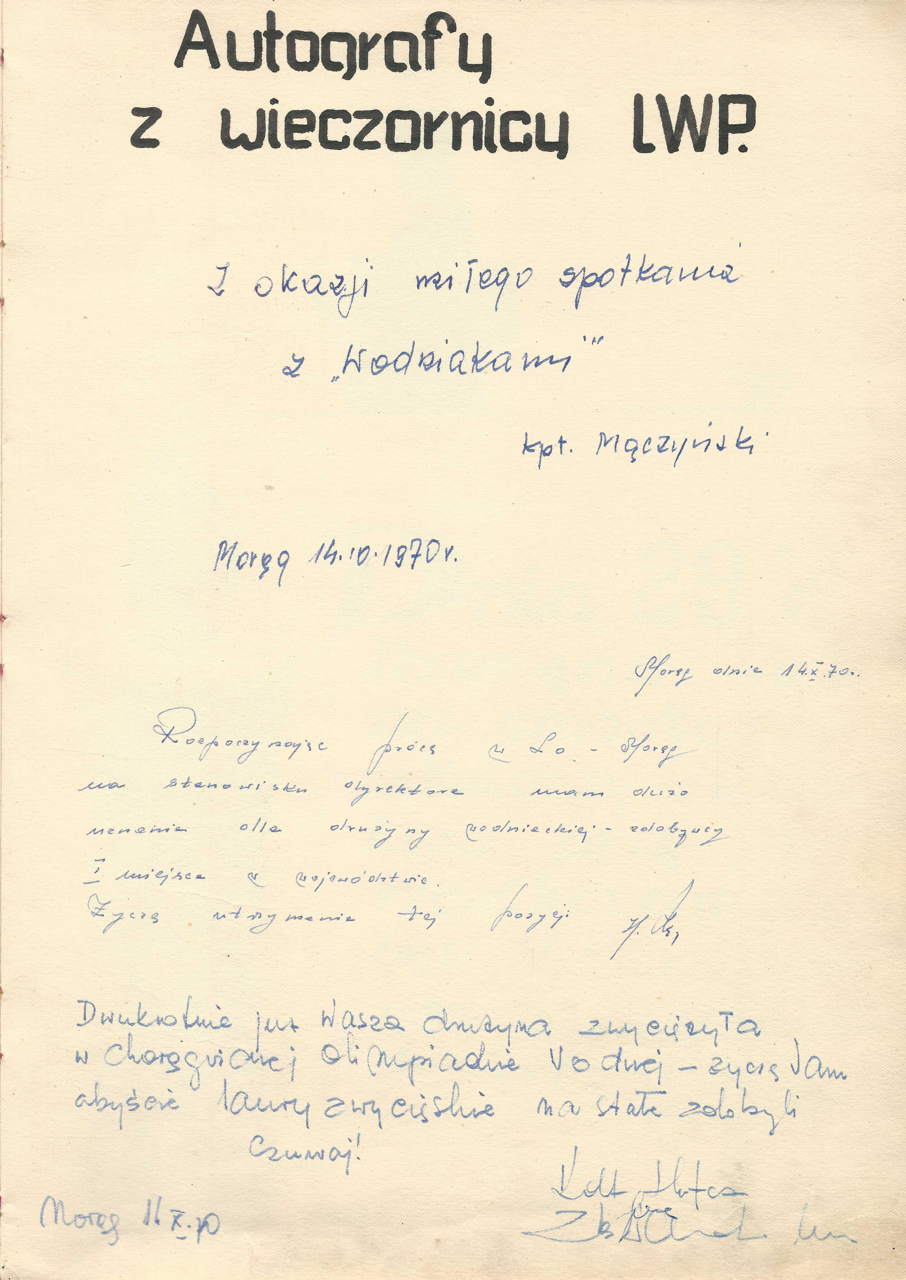 Autografy
z wieczornicy LWP.
Z okazji miłego spotkania
z „Wodziakami"
kpt. Mączyński
Morąg 14.10.1970r.
Morąg dnia 14.X.70r.
Rozpoczynając pracę w Lo - Morąg
na stanowisku dyrektora mam dużo
uznania dla drużyny wodniackiej - zdobywcy
I miejsca w województwie.
Życzę utrzymania tej pozycji
Dwukrotnie już Wasza drużyna zwyciężyła
w chorągwianej Olimpiadzie Wodnej - życzę Wam
abyście laury zwycięskie na stałe zdobyli
Czuwaj!
Morąg X.70